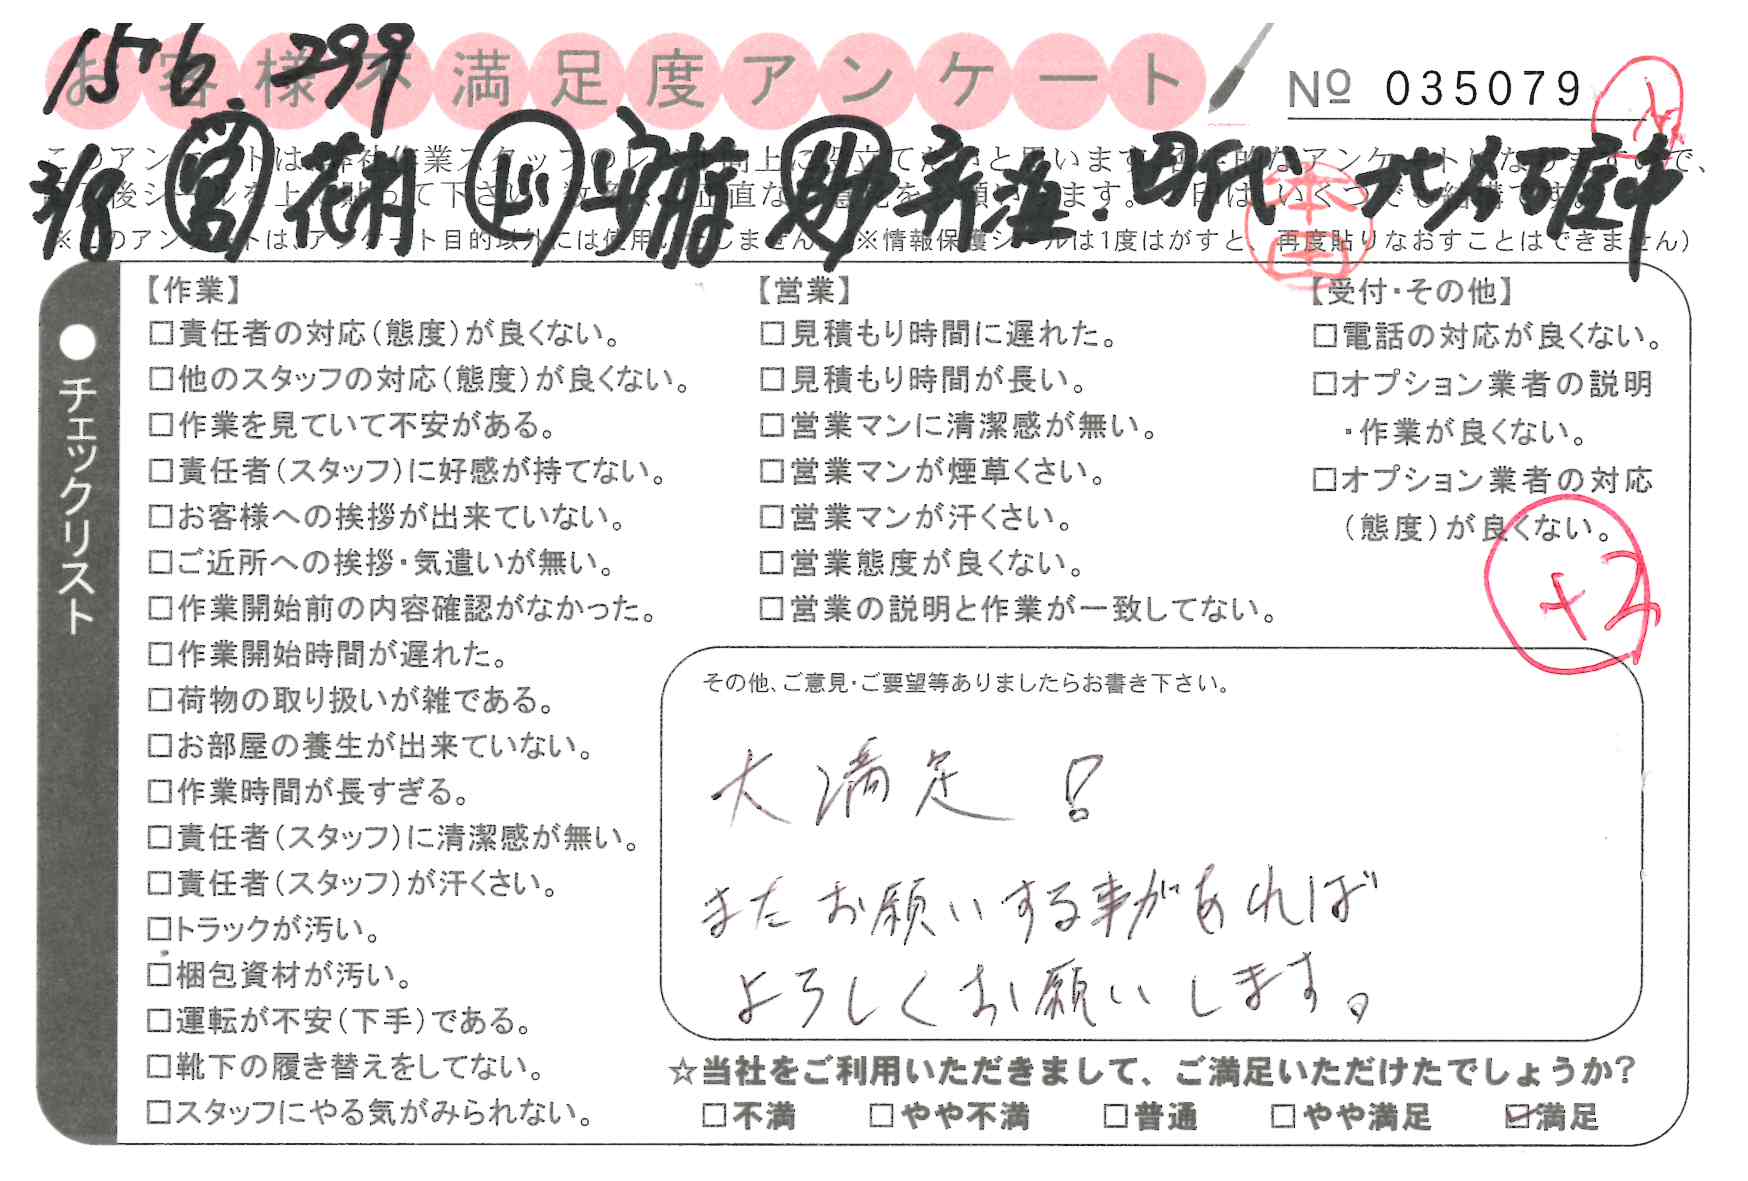 156.299
お客様不満足度アンケート
Nº 035079
3/8 営 花村 上 安藤 助 新海.田代 北名石庭中
本田
チェックリスト
【作業】
□責任者の対応(態度)が良くない。
□他のスタッフの対応(態度)が良くない。
□作業を見ていて不安がある。
□責任者(スタッフ)に好感が持てない。
□お客様への挨拶が出来ていない。
□ご近所への挨拶・気遣いが無い。
□作業開始前の内容確認がなかった。
□作業開始時間が遅れた。
□荷物の取り扱いが雑である。
□お部屋の養生が出来ていない。
□作業時間が長すぎる。
□責任者(スタッフ)に清潔感が無い。
□責任者(スタッフ)が汗くさい。
□トラックが汚い。
□梱包資材が汚い。
□運転が不安(下手)である。
□靴下の履き替えをしてない。
□スタッフにやる気がみられない。
【営業】
□見積もり時間に遅れた。
□見積もり時間が長い。
□営業マンに清潔感が無い。
□営業マンが煙草くさい。
□営業マンが汗くさい。
□営業態度が良くない。
□営業の説明と作業が一致してない。
【受付・その他】
□電話の対応が良くない。
□オプション業者の説明
・作業が良くない。
□オプション業者の対応
(態度)が良くない。
+2
その他、ご意見・ご要望等ありましたらお書き下さい。
大満足!
またお願いする事があれば
よろしくお願いします。
☆当社をご利用いただきまして、ご満足いただけたでしょうか?
□不満 □やや不満 □普通 □やや満足 ☑満足